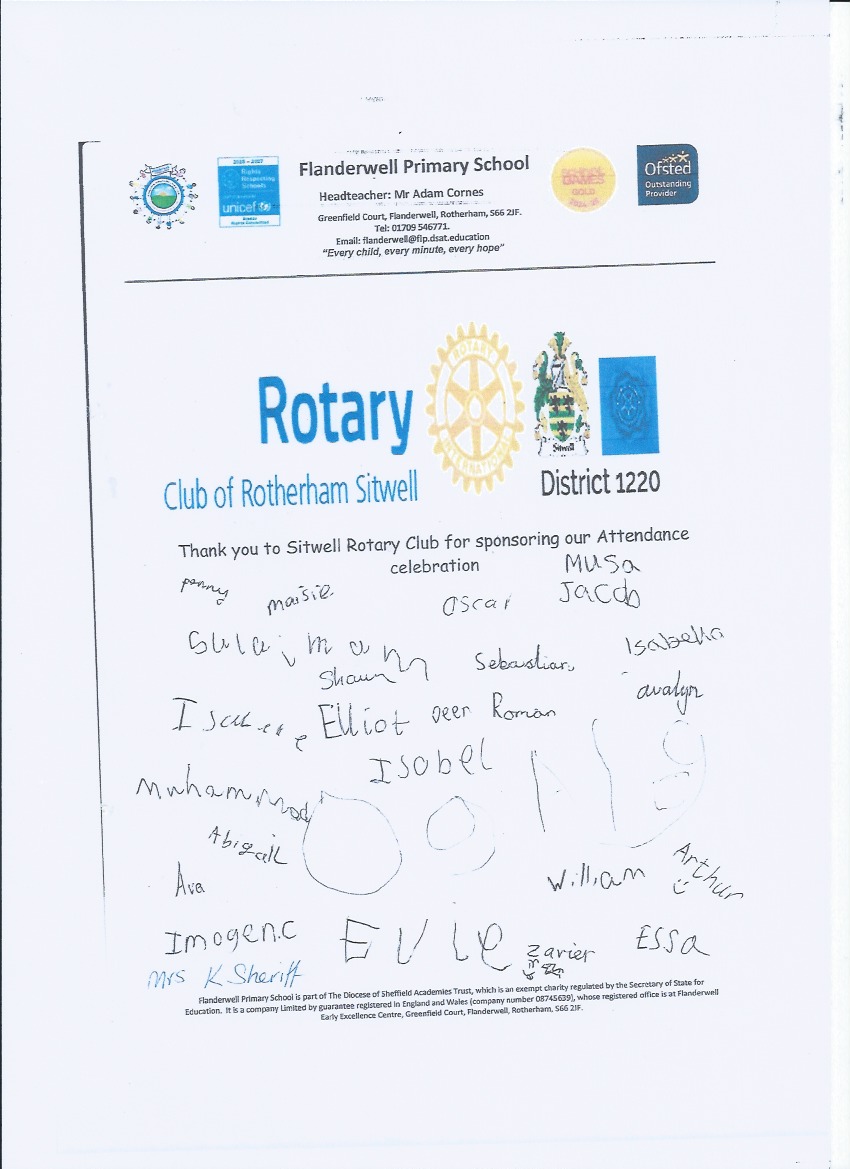 Flanderwell Primary School
Headteacher: Mr Adam Cornes
Greenfield Court, Flanderwell, Rotherham, S66 2JF.
Tel: 01709 546771.
Email: flanderwell@flp.dsat.education
"Every child, every minute, every hope"
Rights
Respecting
Schools
unicef
GAMES
GOLD
Ofsted
Outstanding
Provider
Rotary
ROTARY
INTERNATIONAL
Sitwell
Club of Rotherham Sitwell
District 1220
Thank you to Sitwell Rotary Club for sponsoring our Attendance
celebration
MUSA
penny maisie Oscar Jacob
Sulaiman Shaun Sebastian Isabella
Elliot Roman avalyn
Isobel
Muhammad
Abigail
Ava William Arthur
Imogen.C EVIE Zavier ESSA
Mrs K Sheriff
Flanderwell Primary School is part of The Diocese of Sheffield Academies Trust, which is an exempt charity regulated by the Secretary of State for
Education. It is a company Limited by guarantee registered in England and Wales (company number 08745639), whose registered office is at Flanderwell
Early Excellence Centre, Greenfield Court, Flanderwell, Rotherham, S66 2JF.